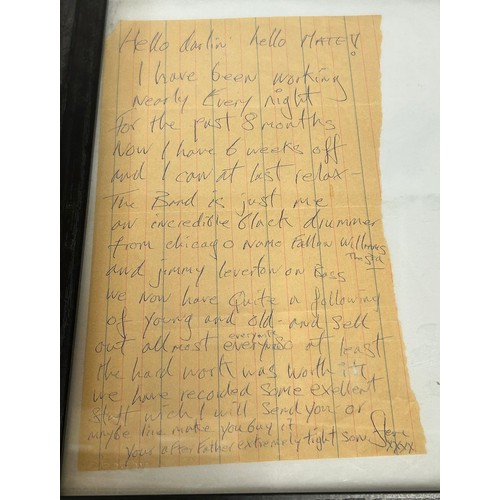 Hello darlin' hello MATEY!
I have been working
Nearly Every night
For the past 8 months
Now I have 6 weeks off
and I can at last relax -
The Band is just me
an incredible black drummer
from chicago name Fallon Williams
The 3rd
and jimmy leverton on Bass
we now have Quite a following
of young and old - and sell
out allmost everynite so at least
the hard work was worth it
we have recorded some exellent
stuff wich I will send you - or
maybe I'me make you buy it
your after Father extremely tight son. Steve
xxxx